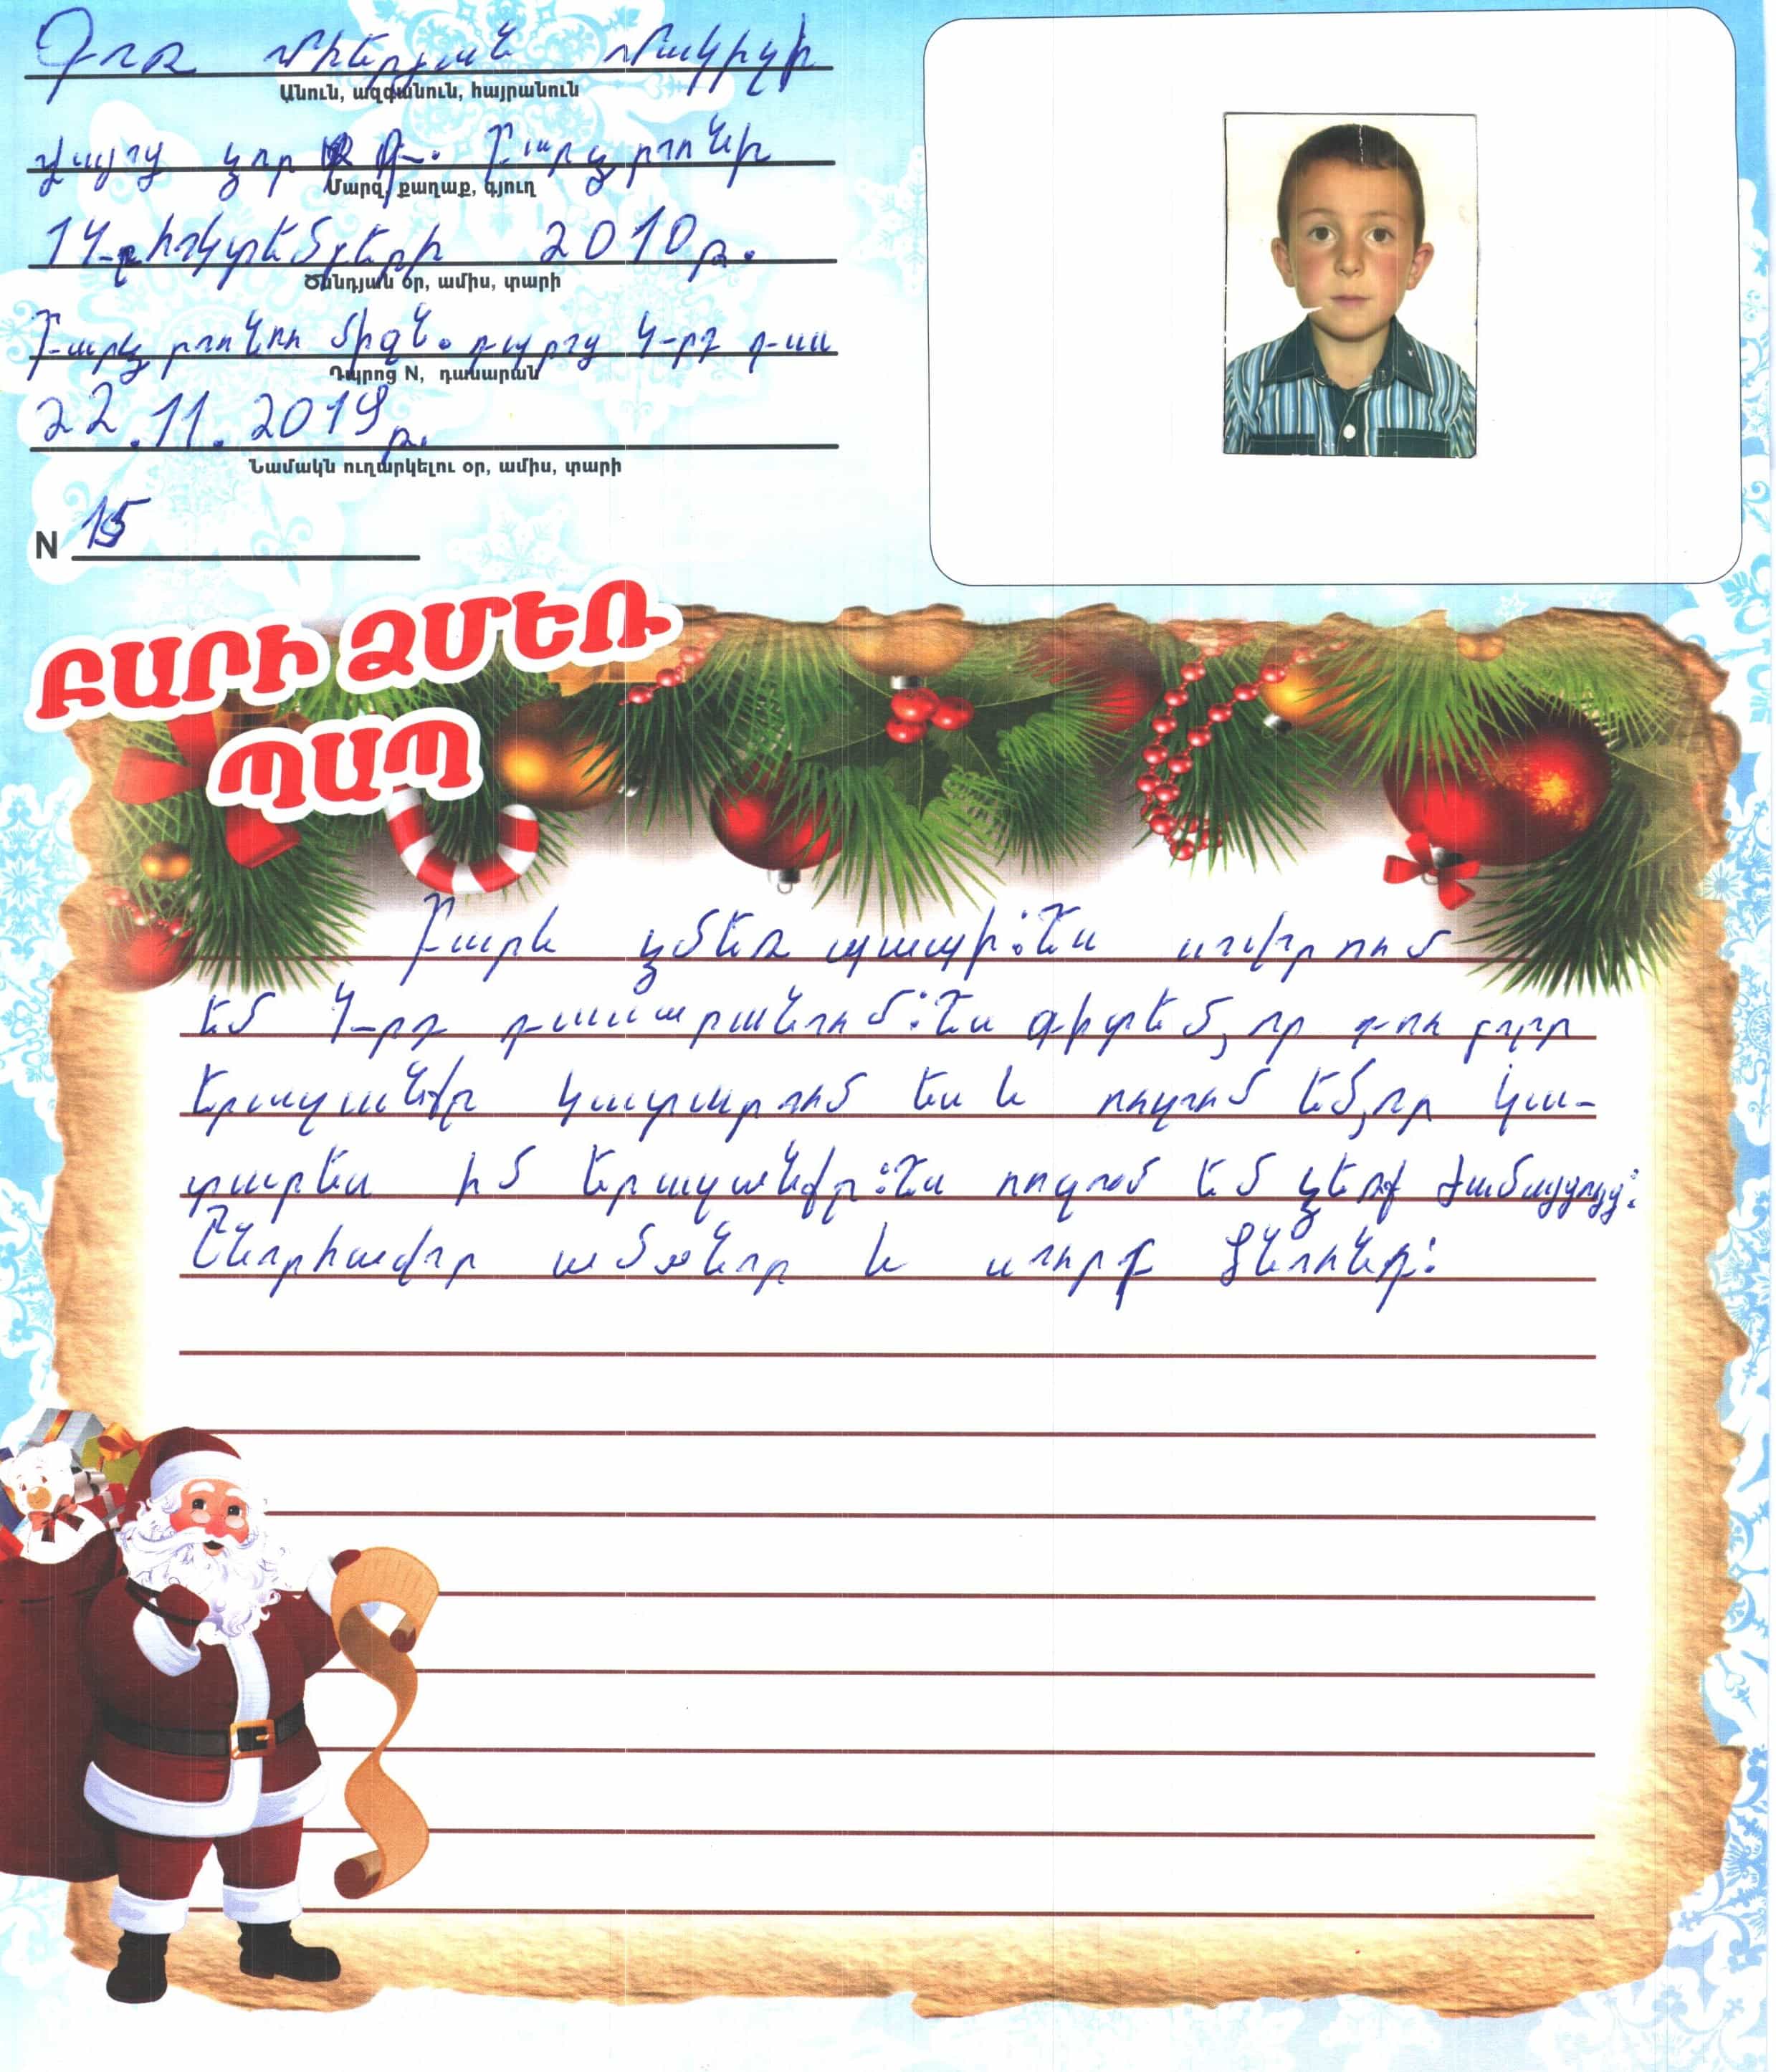 Գոռ Մհերյան Մակիչի
Անուն, ազգանուն, հայրանուն
Վայոց ձոր գ. Բարձրունի
Մարզ, քաղաք, գյուղ
14-հոկտեմբերի 2010թ.
Ծննդյան օր, ամիս, տարի
Բարձրունու միջն. դպրոց 4-րդ դաս
Դպրոց N, դասարան
22.11.2019թ.
Նամակն ուղարկելու օր, ամիս, տարի
N 15
ԲԱՐԻ ՁՄԵՌ
ՊԱՊ
Բարև ձմեռ պապի: Ես սովորում
եմ 4-րդ դասարանում: Ես գիտեմ, որ դու բոլոր
երազանքը կատարում ես և ուզում եմ, որ կա-
տարես իմ երազանքը: Ես ուզում եմ ձեռք ժամացույց:
Շնորհավոր ամանոր և սուրբ ծնունդ: